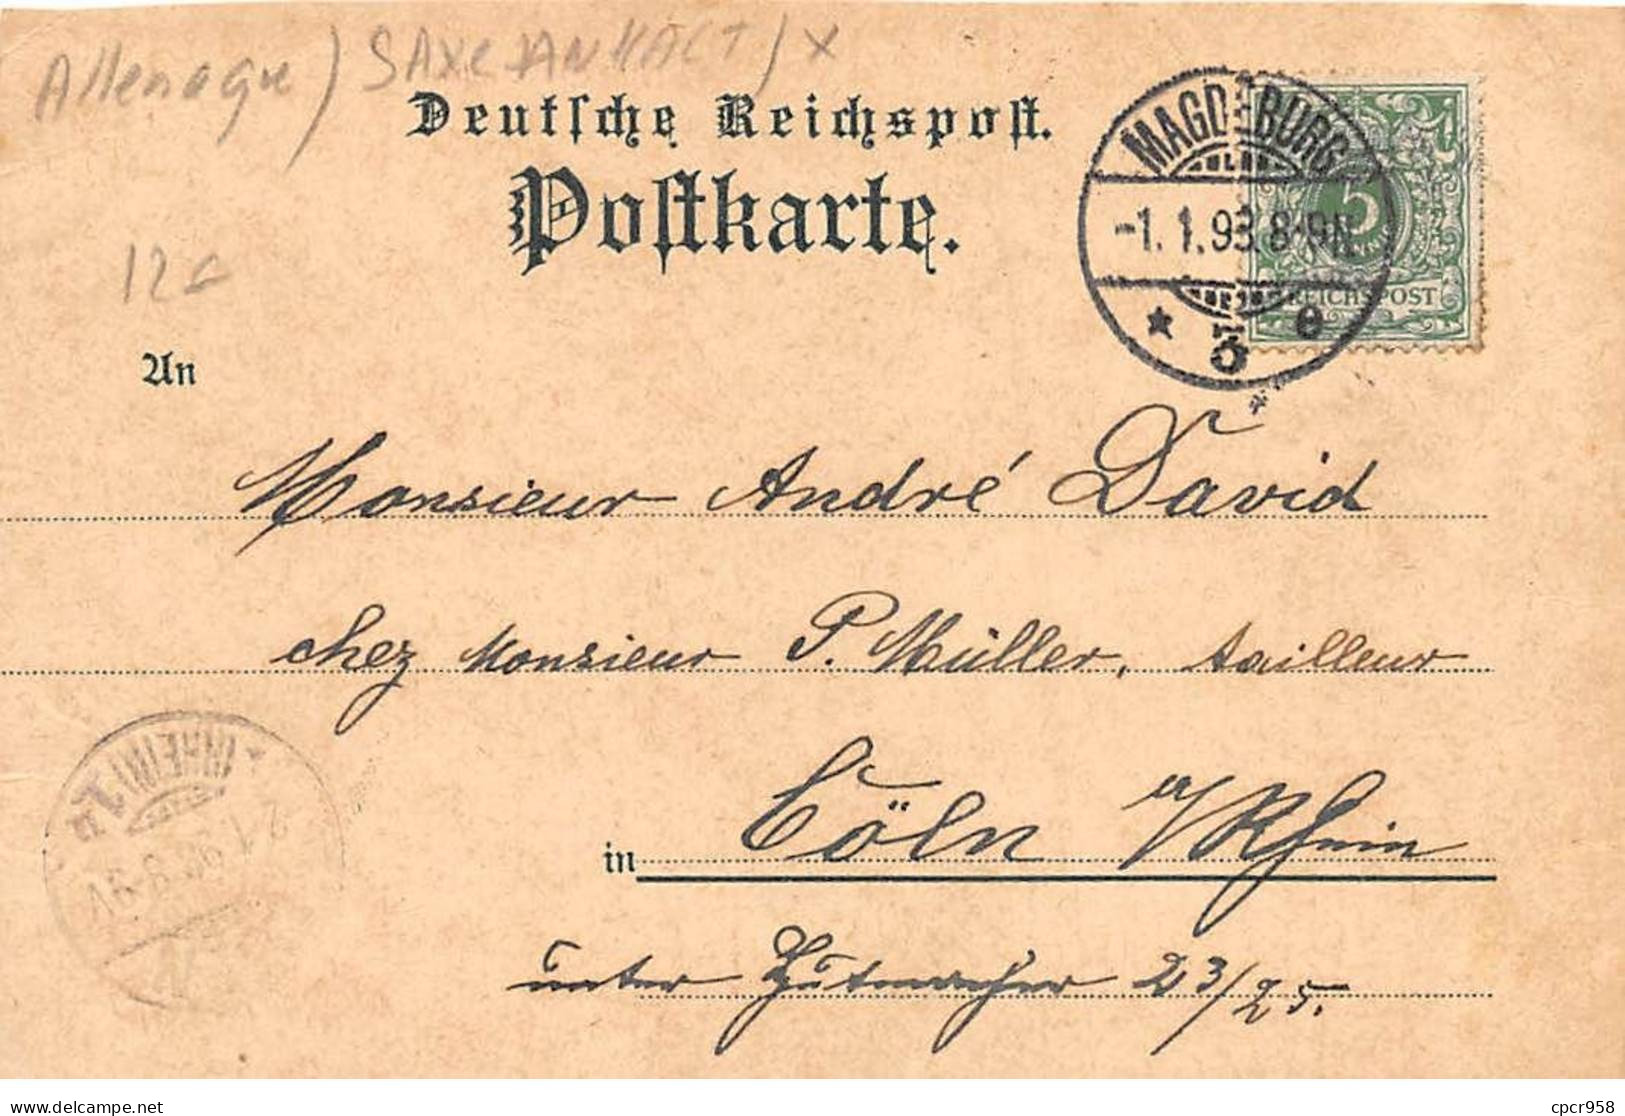 Allemagne) SAXE ANHALT / X
Deutsche Reichspost.
Postkarte.
MAGDEBURG
-1. 1. 93. 8-9N.
5
REICHSPOST
* 5 e
12€
An
Monsieur André David
chez Monsieur P. Müller, tailleur
in Cöln a/Rhein
unter Hutmacher 23/25.
delcampe.net
cpcr958